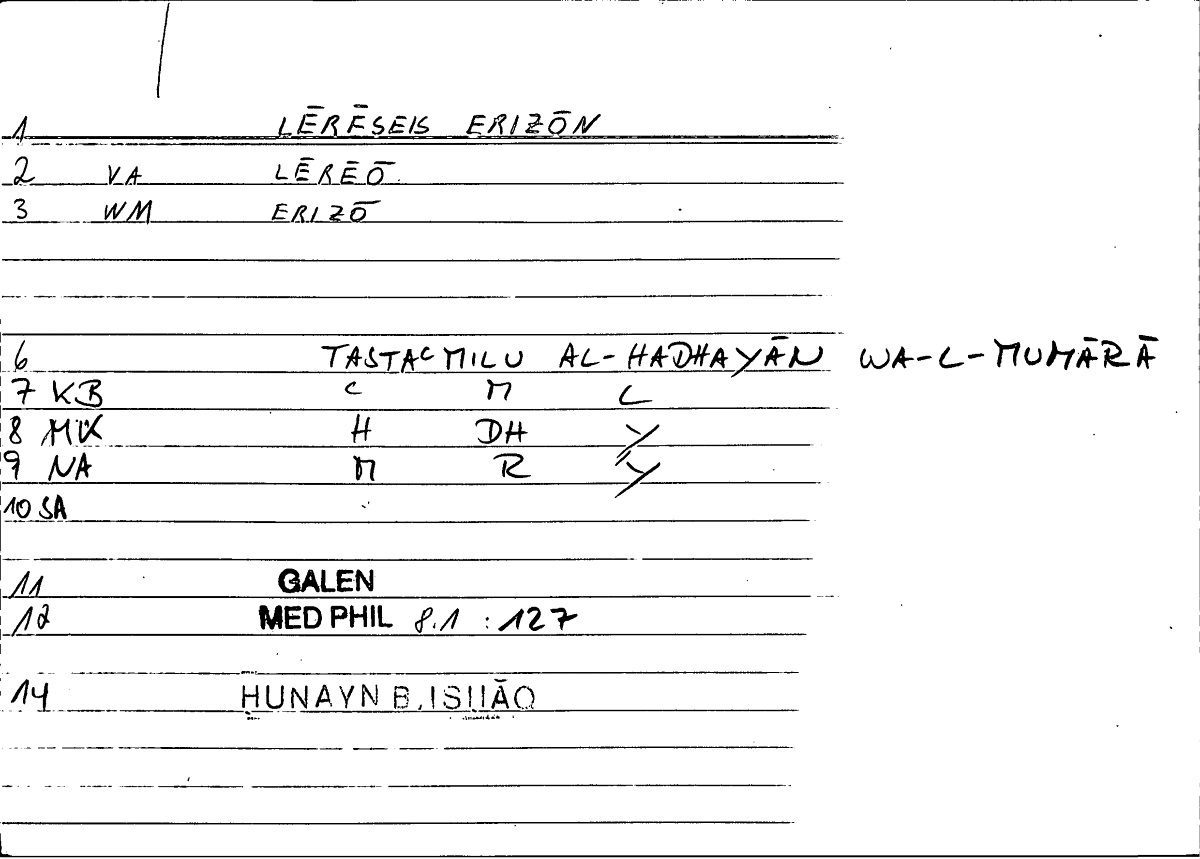 1 LĒRĒSEIS ERIZŌN
2 VA LĒREŌ
3 WM ERIZŌ
6 TASTAcMILU AL-HADHAYĀN WA-L-MUMĀRĀ
7 KB c M L
8 MK H DH Y
9 NA M R Y
10 SA
11 GALEN
12 MED PHIL 8.1 : 127
14 HUNAYN B. ISḤĀQ